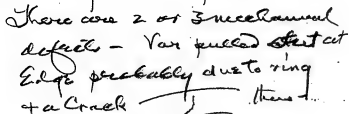 There are 2 or 3 mechanical
defects - Var pulled at
Edge probably due to ring
+ a Crack there